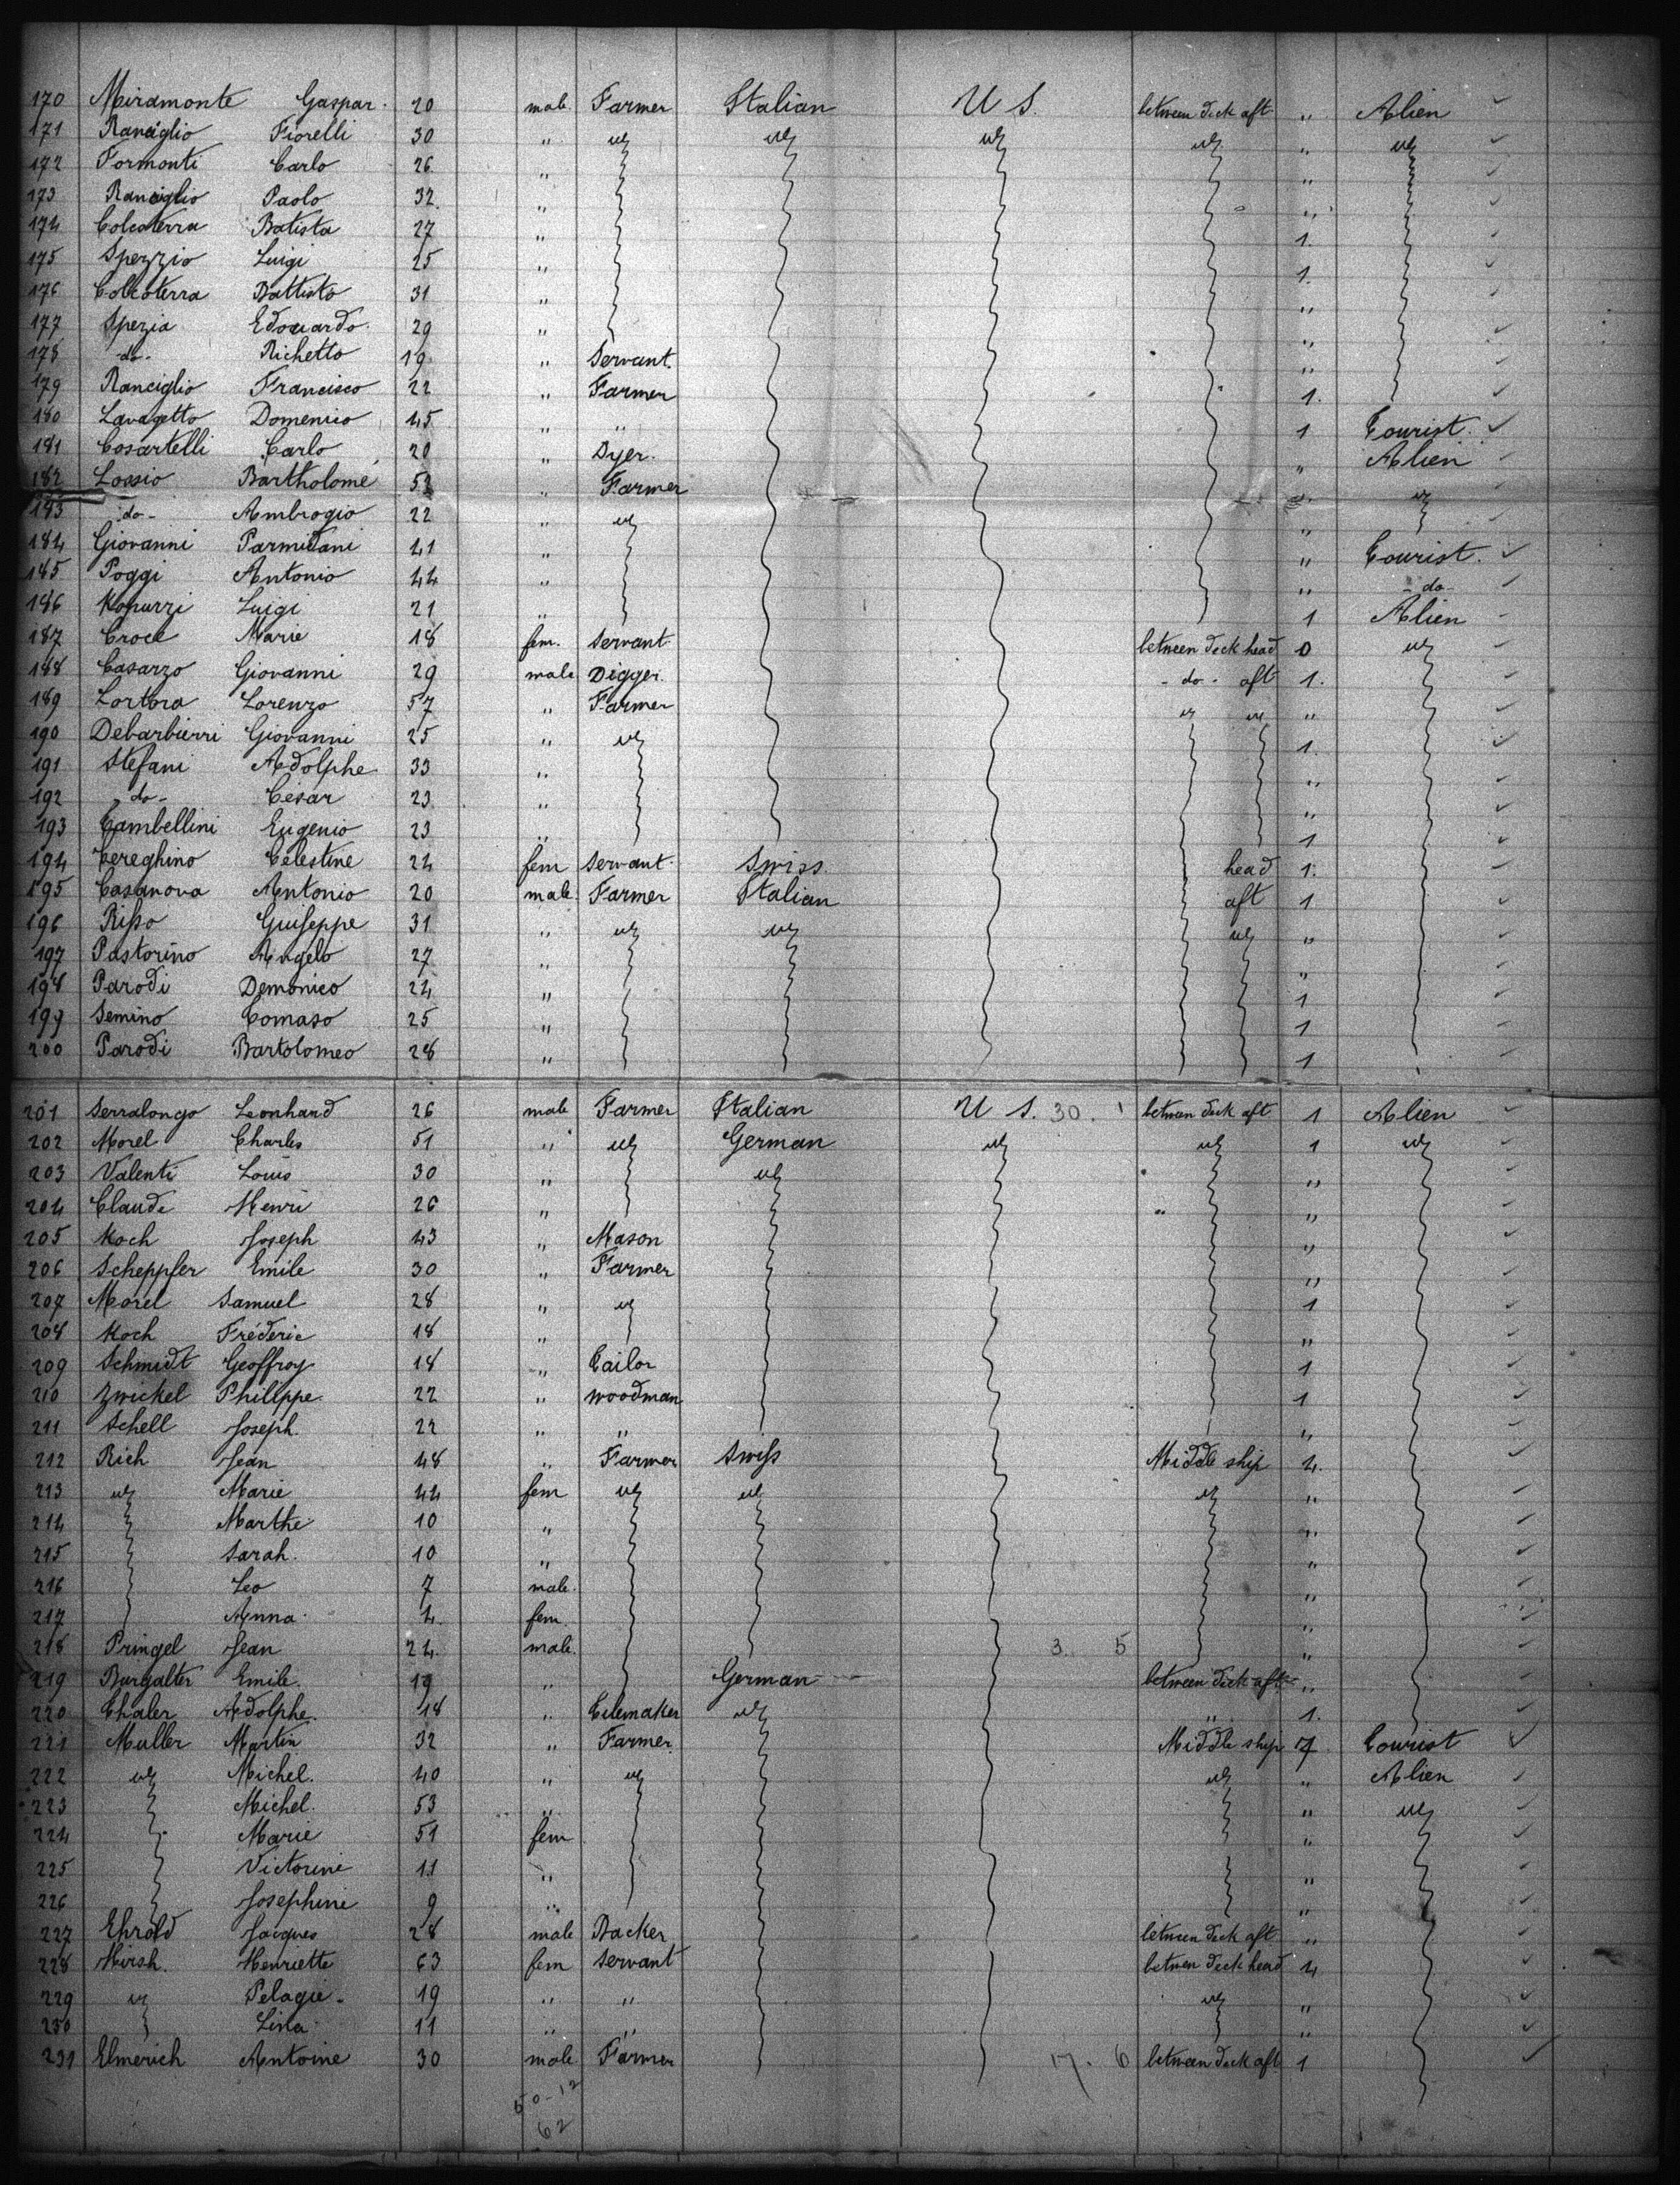 170 Miramonte Gaspar. 20 male. Farmer Italian U S. between deck aft „ Alien ✓
171 Ranciglio Fiorelli 30 „ „ „ „ „ „ „ ✓
172 Formonti Carlo 26 „ „ ✓
173 Ranciglio Paolo 32. „ „ ✓
174 Colcaterra Batista 27 „ 1. ✓
175 Spezzio Luigi 25 „ 1. ✓
176 Colcoterra Battisto 31 „ „ ✓
177 Spezia Edouardo. 29 „ „ ✓
178 -do- Richetto 19 „ Servant. „ ✓
179 Ranciglio Francisco 22 „ Farmer 1. ✓
180 Lavagetto Domenico 45 „ „ 1 Tourist. ✓
181 Cosartelli Carlo 20 „ Dyer. „ Alien ✓
182 Lossio Bartholomé „ Farmer „ „ ✓
183 -do- Ambrogio 22 „ „ „ ✓
184 Giovanni Parmidani 41 „ „ Tourist. ✓
185 Poggi Antonio 44 „ „ -do- ✓
186 Luigi 21 „ 1 Alien ✓
187 Croce Marie 18 fem. Servant. between deck head 0 „ ✓
188 Casazzo Giovanni 29 male Digger. -do- aft 1. ✓
189 Lortora Lorenzo 57 „ Farmer „ „ „ ✓
190 Debarbierri Giovanni 25 „ „ 1. ✓
191 Stefani Adolphe 33 „ „ ✓
192 -do- César 23 „ „ ✓
193 Cambellini Eugenio 23 „ 1 ✓
194 Cereghino Célestine 24 fem Servant. Swiss. head 1. ✓
195 Casanova Antonio 20 male. Farmer Italian aft 1 ✓
196 Risso Guiseppe 31 „ „ „ „ „ ✓
197 Pastorino Angelo 27 „ „ ✓
198 Parodi Demonico 24 „ 1 ✓
199 Semino Tomaso 25 „ 1 ✓
200 Parodi Bartolomeo 28 „ 1 ✓
201 Serralongo Leonhard 26 male Farmer Italian U S. 30. 1 between deck aft 1 Alien ✓
202 Morel Charles 51 „ „ German „ „ 1 „ ✓
203 Valenti Louis 30 „ „ „ ✓
204 Claude Henri 26 „ „ ✓
205 Koch Joseph 43 „ Mason „ ✓
206 Scheppfer Emile 30 „ Farmer „ ✓
207 Morel Samuel 28 „ „ 1 ✓
208 Koch Fréderic 18 „ „ ✓
209 Schmidt Geoffroy 18 „ Tailor 1 ✓
210 Zwickel Philippe 22 „ Woodman 1 ✓
211 Schell Joseph. 22 „ „ „ ✓
212 Rich Jean 48 „ Farmer Swiss Middle ship 4. ✓
213 „ Marie 44 fem „ „ „ „ ✓
214 Marthe 10 „ „ ✓
215 Sarah. 10 „ „ ✓
216 Leo 7 male. „ ✓
217 Anna 4. fem. „ ✓
218 Pringel Jean 24. male. 3. 5 „ ✓
219 Burgalter Emile. 19 „ German between deck aft „ ✓
220 Chaler Adolphe. 18 „ Tilemaker „ „ 1. ✓
221 Muller Martin 32 „ Farmer. Middle ship 7 Tourist ✓
222 „ Michel. 40 „ „ „ „ Alien ✓
223 Michel. 53 „ „ „ ✓
224 Marie 51 fem „ ✓
225 Victorine 11 „ „ ✓
226 Josephine 9 „ „ ✓
227 Ehrold Jacques 28 male Backer between deck aft „ ✓
228 Hirsh. Henriette 63 fem Servant between deck head 4 ✓
229 „ Pelagie 19 „ „ „ „ ✓
230 Lina 11 „ „ „ ✓
231 Elmerich Antoine 30 male Farmer 17. 6 between deck aft 1 ✓
50-12
62